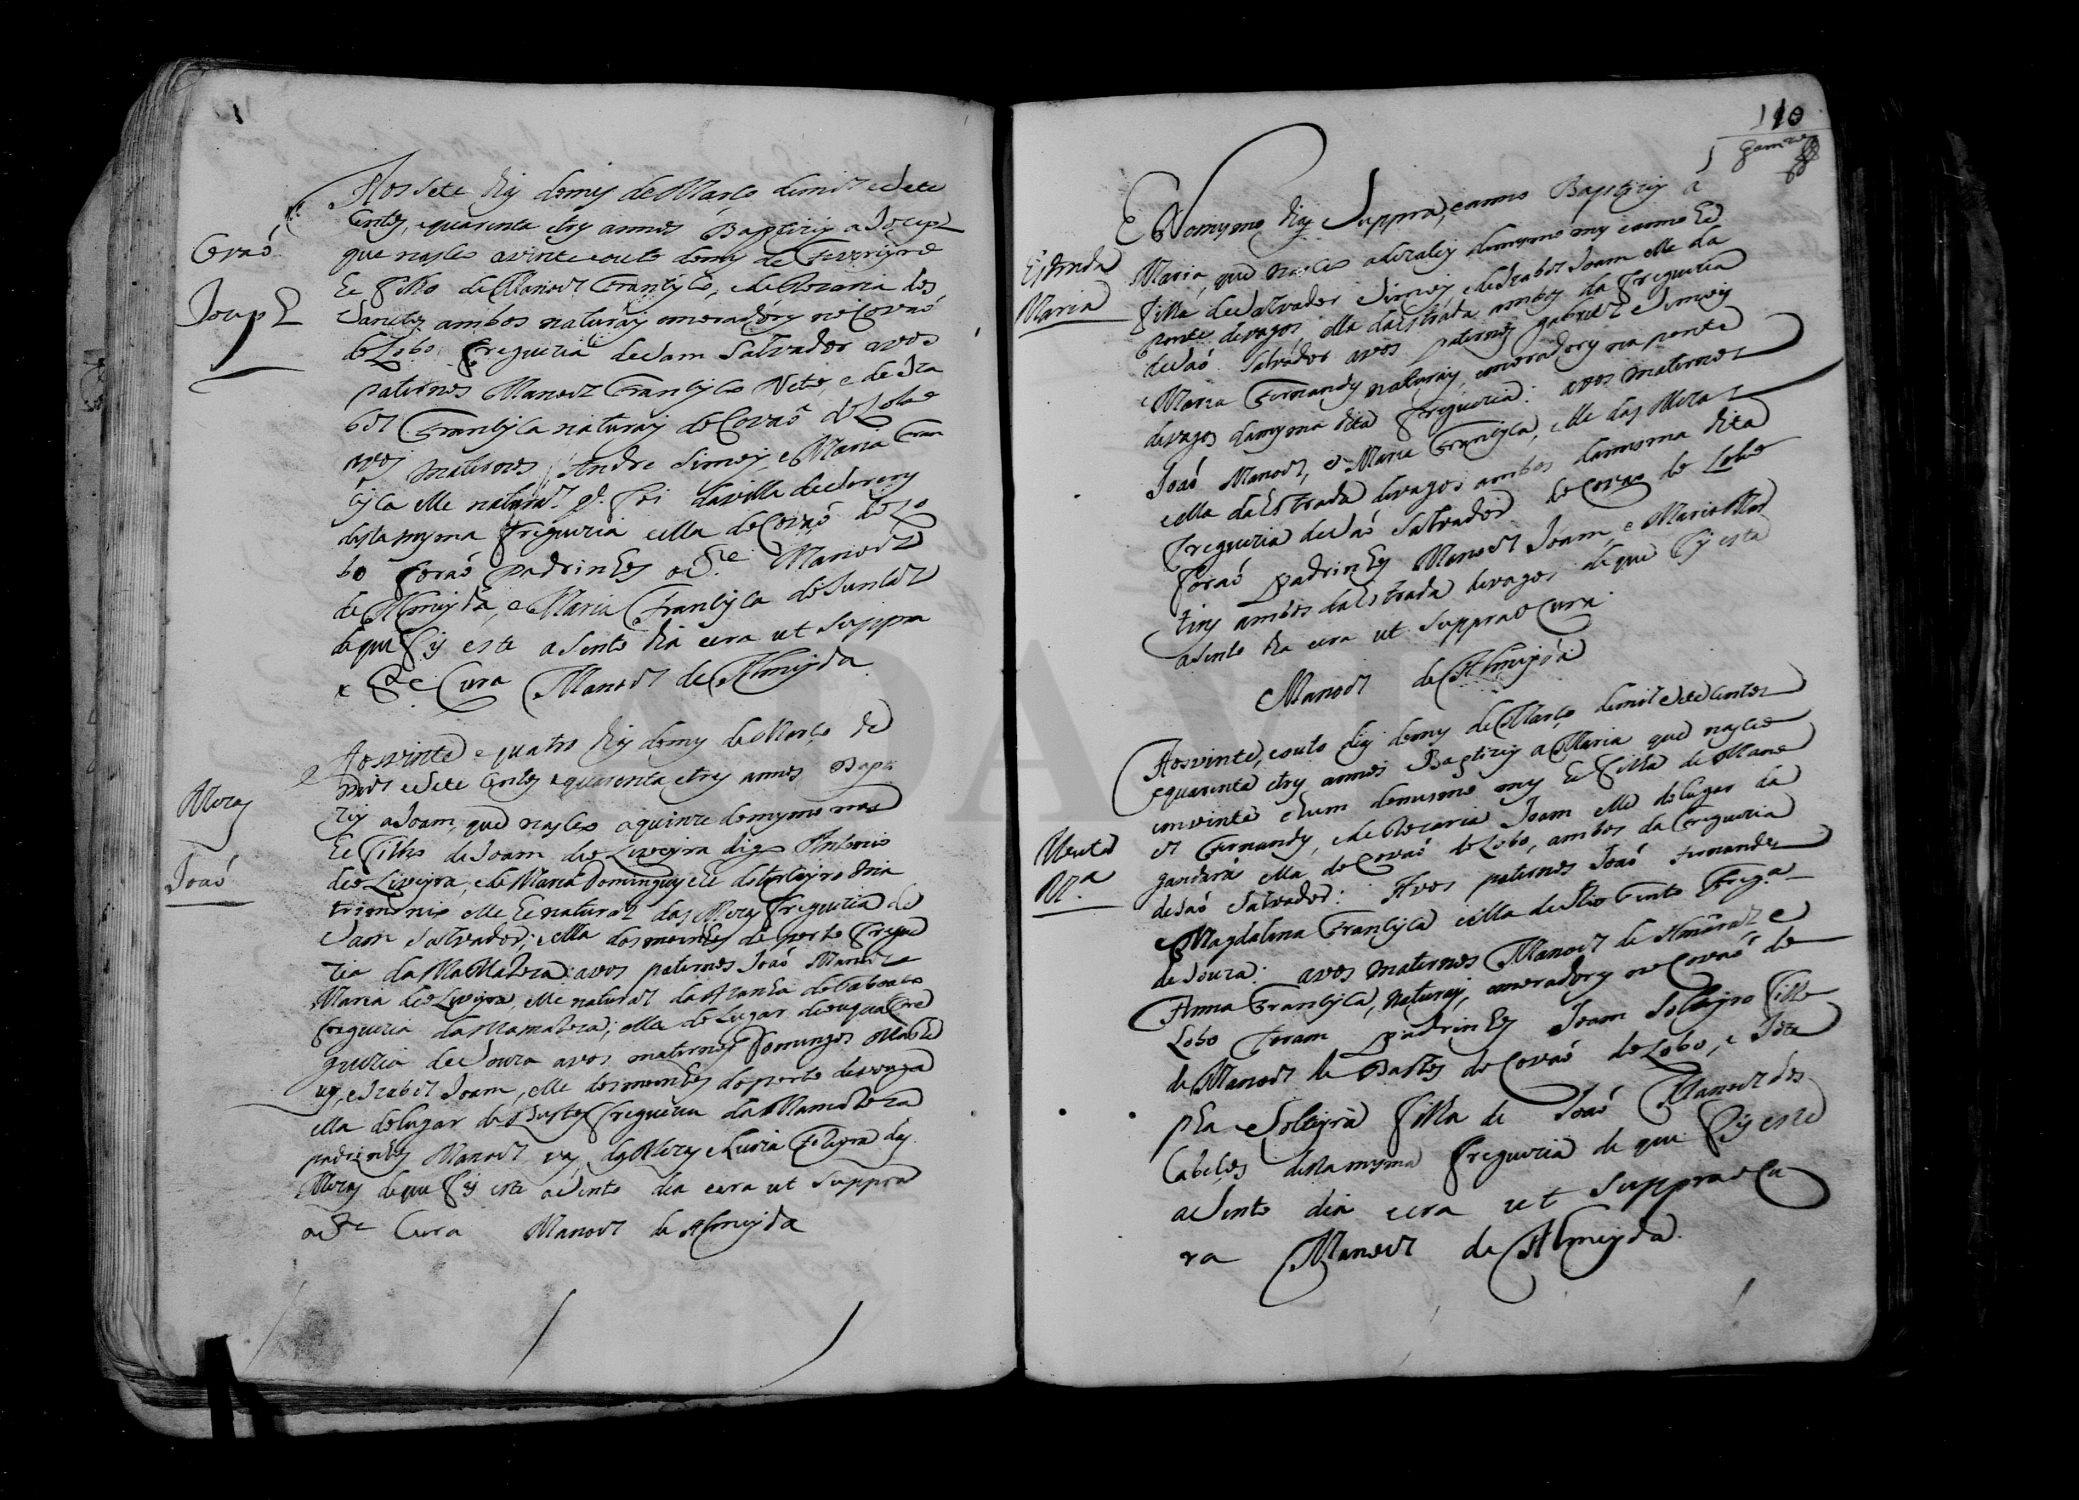 Aos sete dias do mes de Março de mil e sete
Centos, e quarenta e tres annos Baptizej a Joseph
Covaõ
que nasceo a vinte e outo do mes de Fevrejro
Joseph
he filho de Manoel Francisco, e de Rozaria dos
Sanctos ambos naturais e moradores no Covaõ
do Lobo freguezia de Sam Salvador avos
paternos Manoel Francisco Neto, e de Iza
bel Francisca naturais do Covaõ do Lobo
avos maternos Andre Simois, e Maria Fran
cisca elle natural q. foi da villa de Sorens
desta mesma freguezia e ella do Covaõ do Lo
bo foraõ padrinhos o Pe. Manoel
de Almejda, e Maria Francisca
de que fis este asento dia e era ut supra
o Pe. Cura Manoel de Almejda
Aos vinte e quatro dias do mes de Março de
mil e sete Centos e quarenta e tres annos Bapti
Mezas
zej a Joam, que nasceo a quinze do mesmo mes
he filho de Joam de Olivejra digo Antonio
Joaõ
de Olivejra, e de Maria Domingues elle do primejro ma
trimonio elle he natural das Mezas freguezia de
Sam Salvador; e ella dos moinhos de freg
zia da Mamaroza: avos paternos Joaõ Manoel e
Maria de Olivejra, elle natural da Azenha
freguezia da Mamaroza; ella do Lugar fre
guezia de Souza avos maternos Domingos
e Izabel Joam, elle dos moinhos
ella do lugar de Bustos freguezia da Mamaroza
padrinhos Manoel das Mezas e Luzia das
Mezas de que fis este asento dia e era ut supra
o Pe. Cura Manoel de Almejda
110
No mesmo dia supra, e anno Baptizej a
Estrada
Maria, que nasceo do mesmo mes e anno he
Maria
filha de Salvador Simois e de Izabel Joam elle da
ponte de vagos ella da Estrada ambos da freguezia
de Saõ Salvador avos paternos Gabriel Simois
Maria Fernandes naturais, e moradores na ponte
de vagos da mesma dita freguezia: avos maternos
Joaõ Manoel, e Maria Francisca, elle das Mezas
e ella da Estrada de vagos ambos da mesma dita
freguezia de Saõ Salvador do Covaõ do Lobo
foraõ padrinhos Manoel Joam, e Maria Mar
tins ambos da Estrada de vagos de que fis este
asento dia e era ut supra o Cura
Manoel de Almejda
Aos vinte, e outo dias do mes de Março de mil e sete Centos
e quarenta e tres annos Baptizej a Maria que nasceo
em vinte e hum do mesmo mes he filha de Mano
el Fernandes, e de Rozaria Joam elle do lugar da
Mª
gandara ella do Covaõ do Lobo, ambos da freguezia
de Saõ Salvador: Avos paternos Joaõ Fernandes
e Magdalena Francisca e ella de Rio tinto freg.ª
de Souza: avos maternos Manoel de Amaral, e
Anna Francisca, naturais, e moradores no Covaõ do
Lobo foram padrinhos Joam Soltejro filho
de Manoel de Bastos do Covaõ do Lobo, e Joze
pha Soltejra filha de Joaõ Manoel dos
Cabeços desta mesma freguezia de que fis este
asento dia e era ut supra o Cu
ra Manoel de Almejda.